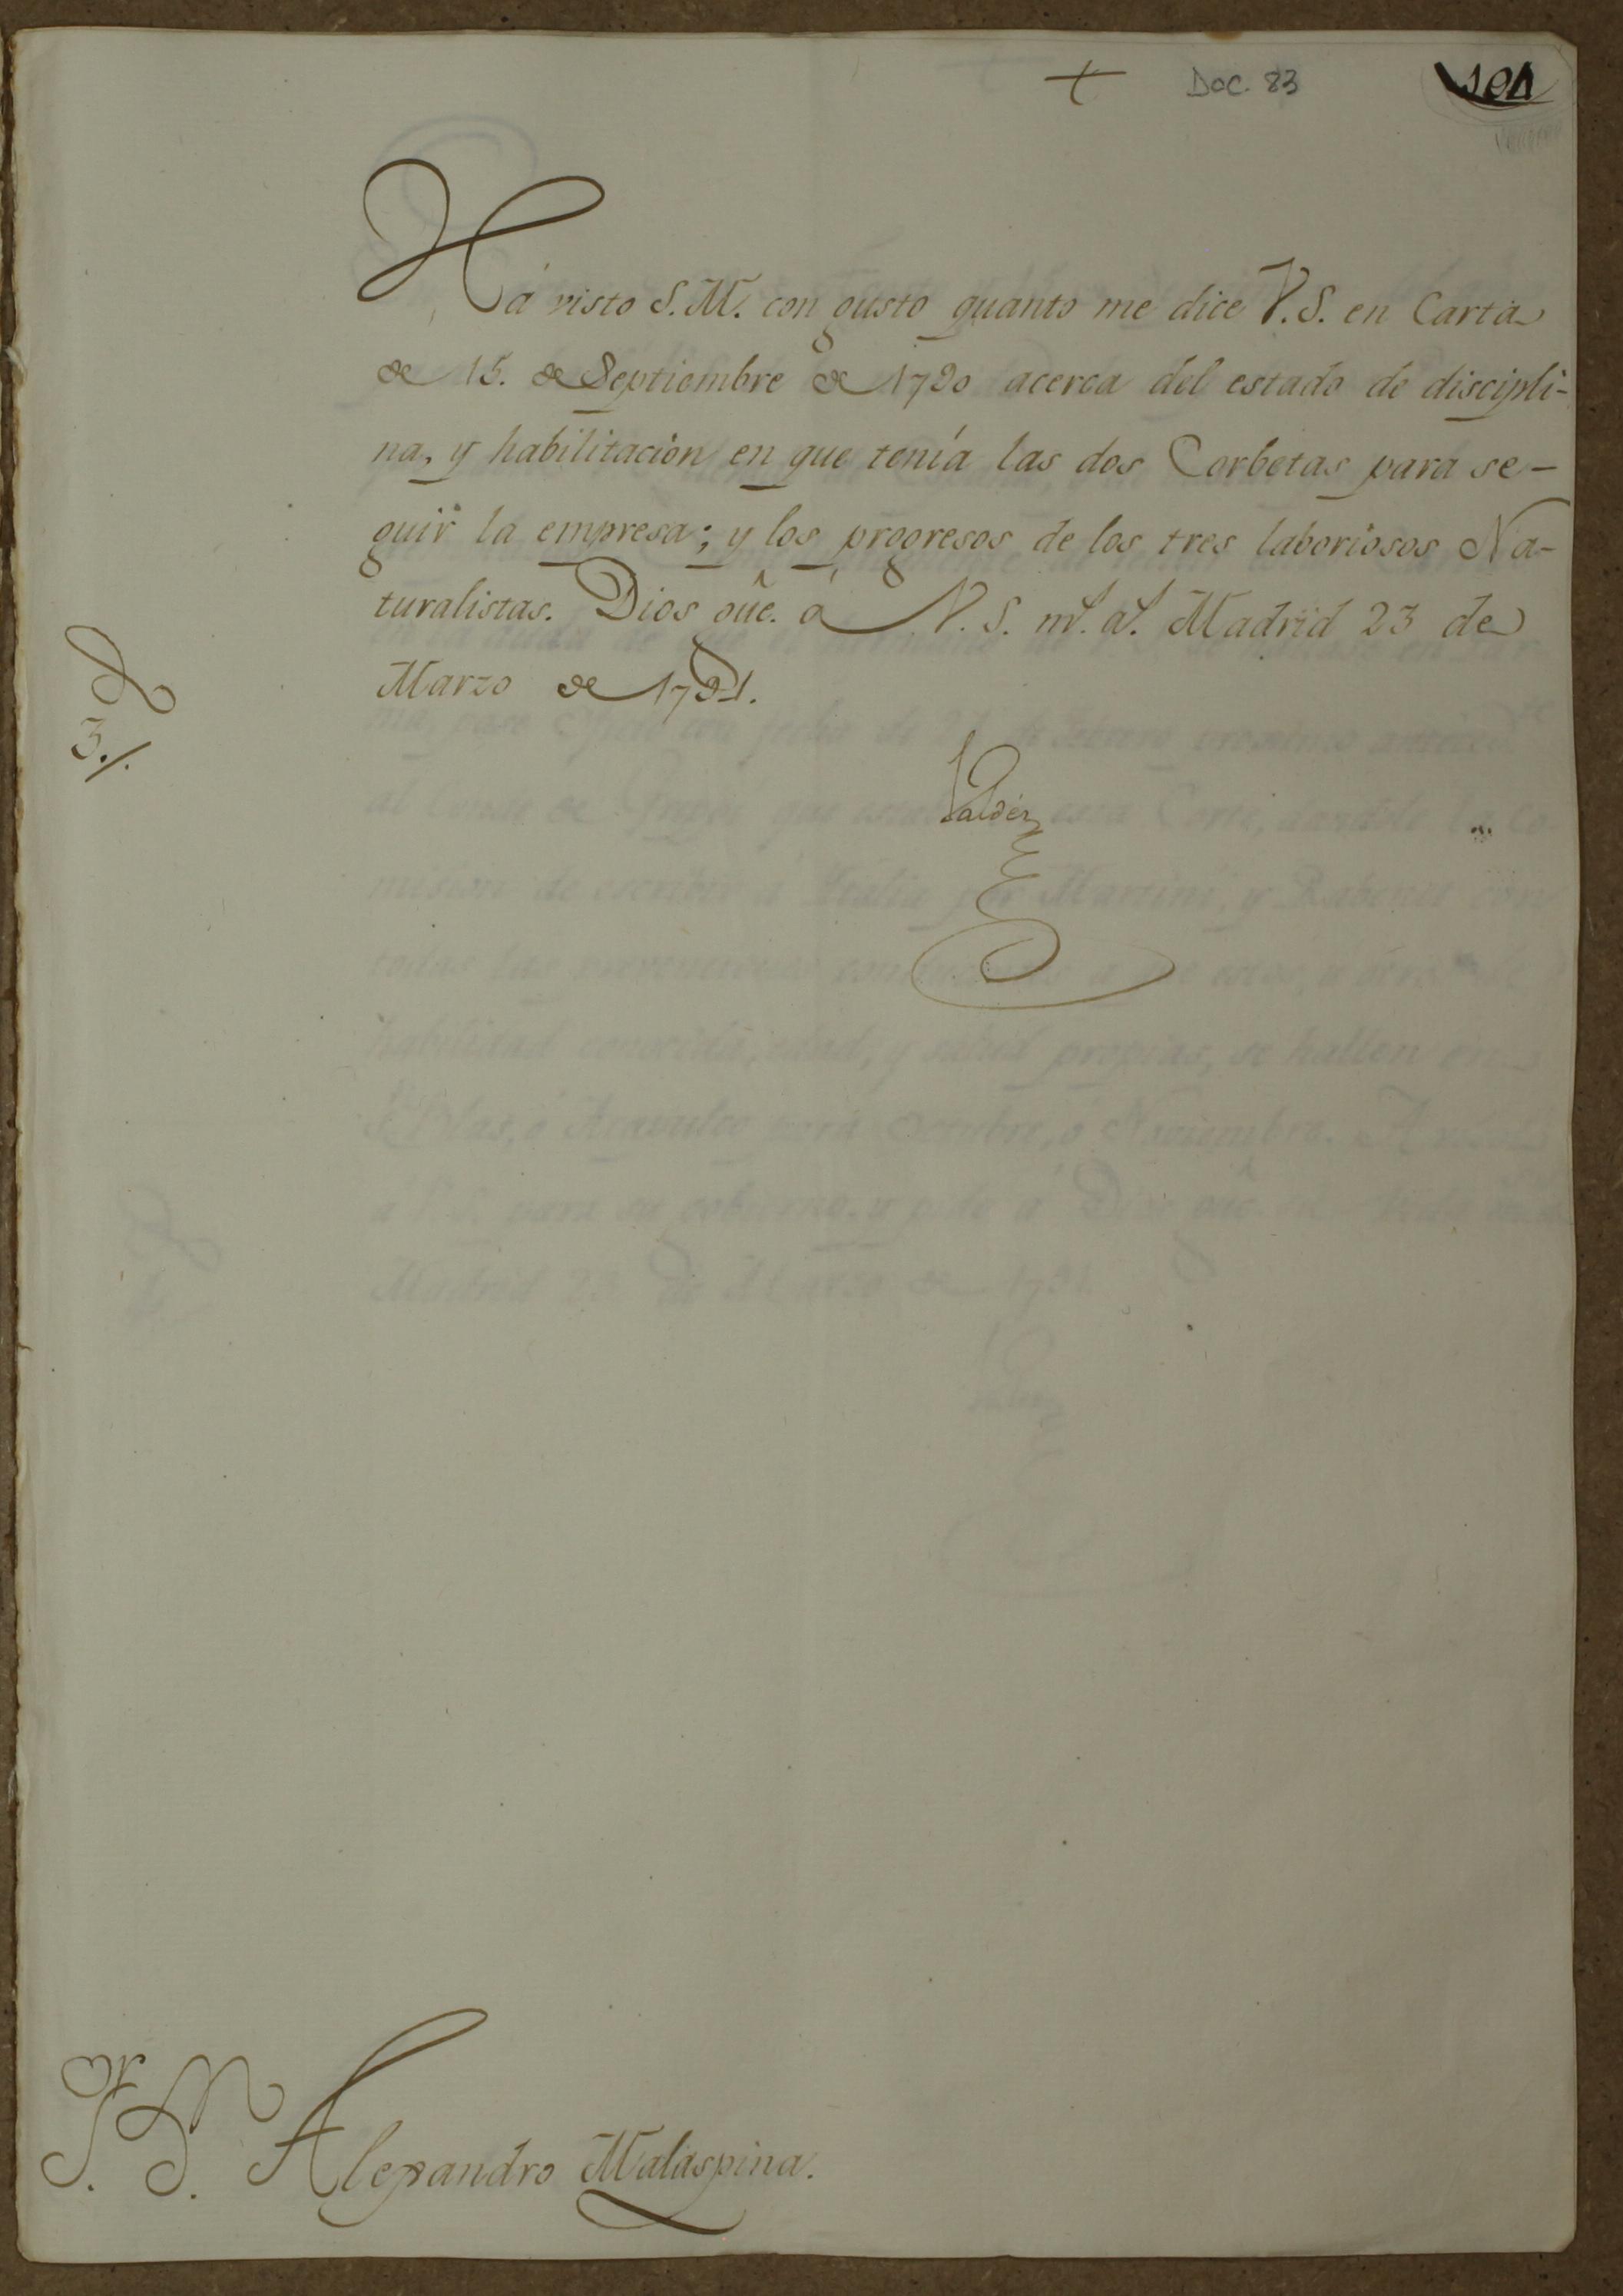 + DOC. 83 101
Há visto S. M. con gusto quanto me dice V. S. en Carta
de 15. de Septiembre de 1790 acerca del estado de discipli-
na, y habilitacion en que tenía las dos Corbetas para se-
guir la empresa; y los progresos de los tres laboriosos Na-
turalistas. Dios gûe. á V. S. ms. as. Madrid 23 de
Marzo de 1791.
Valdés
3./.
Sor. Dn. Alexandro Malaspina.